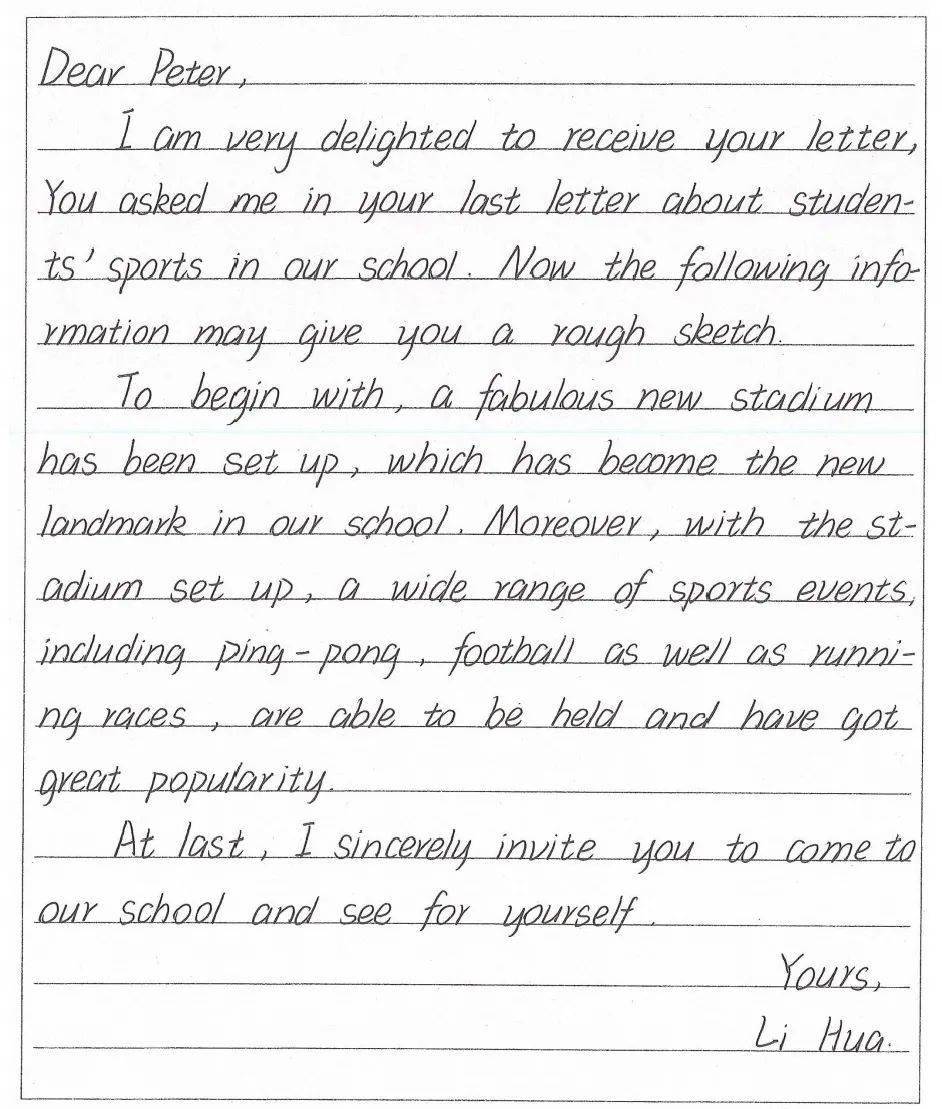 Dear Peter,
I am very delighted to receive your letter,
You asked me in your last letter about studen-
ts' sports in our school. Now the following info-
rmation may give you a rough sketch.
To begin with, a fabulous new stadium
has been set up, which has become the new
landmark in our school. Moreover, with the st-
adium set up, a wide range of sports events,
including ping-pong, football as well as runni-
ng races, are able to be held and have got
great popularity.
At last, I sincerely invite you to come to
our school and see for yourself.
Yours,
Li Hua.